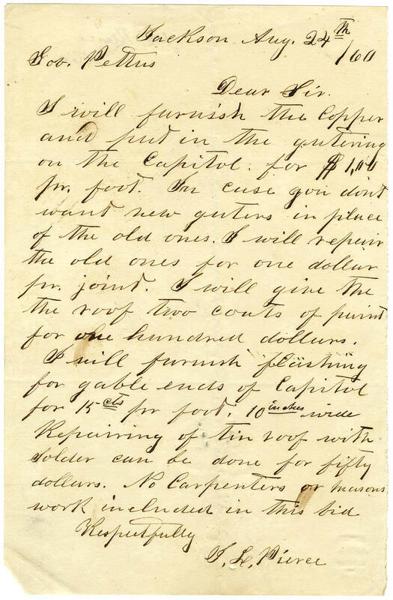 Jackson Aug. 24th
/60
Gov. Pettus
Dear Sir.
I will furnish the Copper
and put in the gutering
on the Capitol. for $1,00
pr. foot. In case you dont
want new guters in place
of the old ones. I will repair
the old ones for one dollar
pr. joint. I will give the
the roof two coats of paint
for one hundred dollars.
I will furnish flashing
for gable ends of Capitol
for 15 cts pr foot. 10 inches wide
Repairing of tin roof with
solder can be done for fifty
dollars. No Carpenters or masons
work included in this bid
Respectfully
Pierce